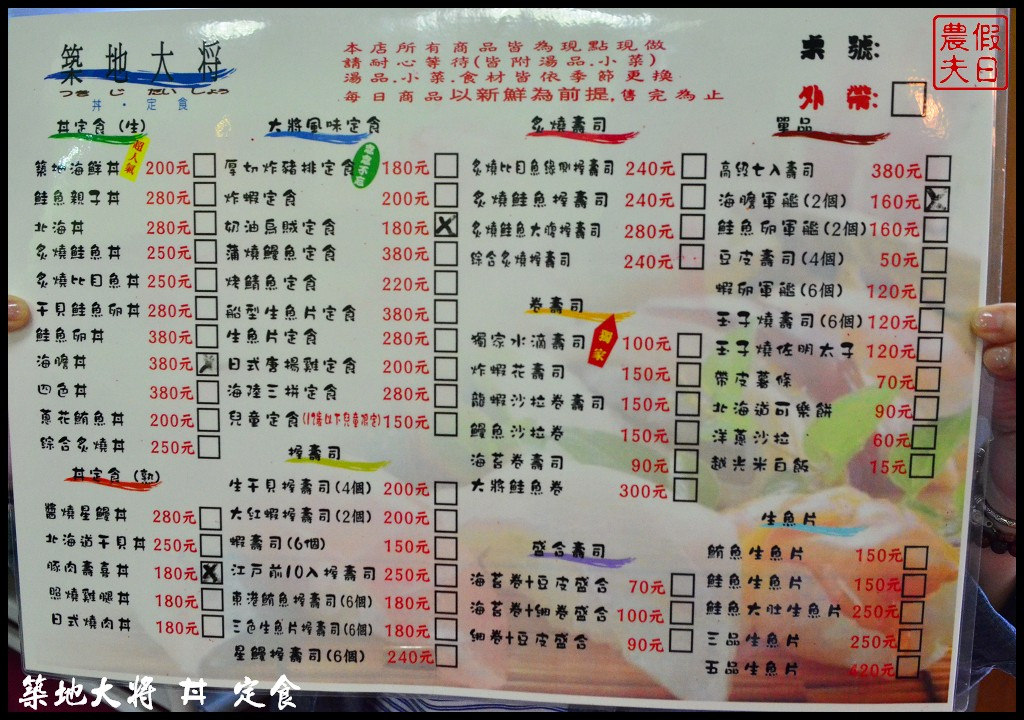 築地大将
つきじ たいしょう
丼・定食
本店所有商品皆為現點現做
請耐心等待(皆附湯品.小菜)
湯品.小菜.食材皆依季節更換
每日商品以新鮮為前提,售完為止
桌號:
外帶:
農夫假日
丼定食(生)
超人氣
築地海鮮丼 200元
鮭魚親子丼 280元
北海丼 280元
炙燒鮭魚丼 250元
炙燒比目魚丼 250元
干貝鮭魚卵丼 280元
鮭魚卵丼 380元
海膽丼 380元
四色丼 380元
蔥花鮪魚丼 200元
綜合炙燒丼 250元
丼定食(熟)
醬燒星鰻丼 280元
北海道干貝丼 250元
豚肉壽喜丼 180元
照燒雞腿丼 180元
日式燒肉丼 180元
大將風味定食
念念不忘
厚切炸豬排定食 180元
炸蝦定食 200元
奶油烏賊定食 180元
蒲燒鰻魚定食 380元
烤鯖魚定食 220元
船型生魚片定食 380元
生魚片定食 280元
日式唐揚雞定食 200元
海陸三拼定食 280元
兒童定食(12歲以下兒童限定) 150元
握壽司
生干貝握壽司(4個) 200元
大紅蝦握壽司(2個) 200元
蝦壽司(6個) 150元
江戶前10入握壽司 250元
東港鮪魚握壽司(6個) 180元
三色生魚片握壽司(6個) 180元
星鰻握壽司(6個) 240元
炙燒壽司
炙燒比目魚緣側握壽司 240元
炙燒鮭魚握壽司 240元
炙燒鮭魚大腹握壽司 280元
綜合炙燒握壽司 240元
卷壽司
獨家
獨家水滴壽司 100元
炸蝦花壽司 150元
龍蝦沙拉卷壽司 150元
鰻魚沙拉卷 150元
海苔卷壽司 90元
大將鮭魚卷 300元
盛合壽司
海苔卷+豆皮盛合 70元
海苔卷+細卷盛合 100元
細卷+豆皮盛合 90元
單品
高級七入壽司 380元
海膽軍艦(2個) 160元
鮭魚卵軍艦(2個) 160元
豆皮壽司(4個) 50元
蝦卵軍艦(6個) 120元
玉子燒壽司(6個) 120元
玉子燒佐明太子 120元
帶皮薯條 70元
北海道可樂餅 90元
洋蔥沙拉 60元
越光米白飯 15元
生魚片
鮪魚生魚片 150元
鮭魚生魚片 150元
鮭魚大肚生魚片 250元
三品生魚片 250元
五品生魚片 420元
築地大將 丼 定食